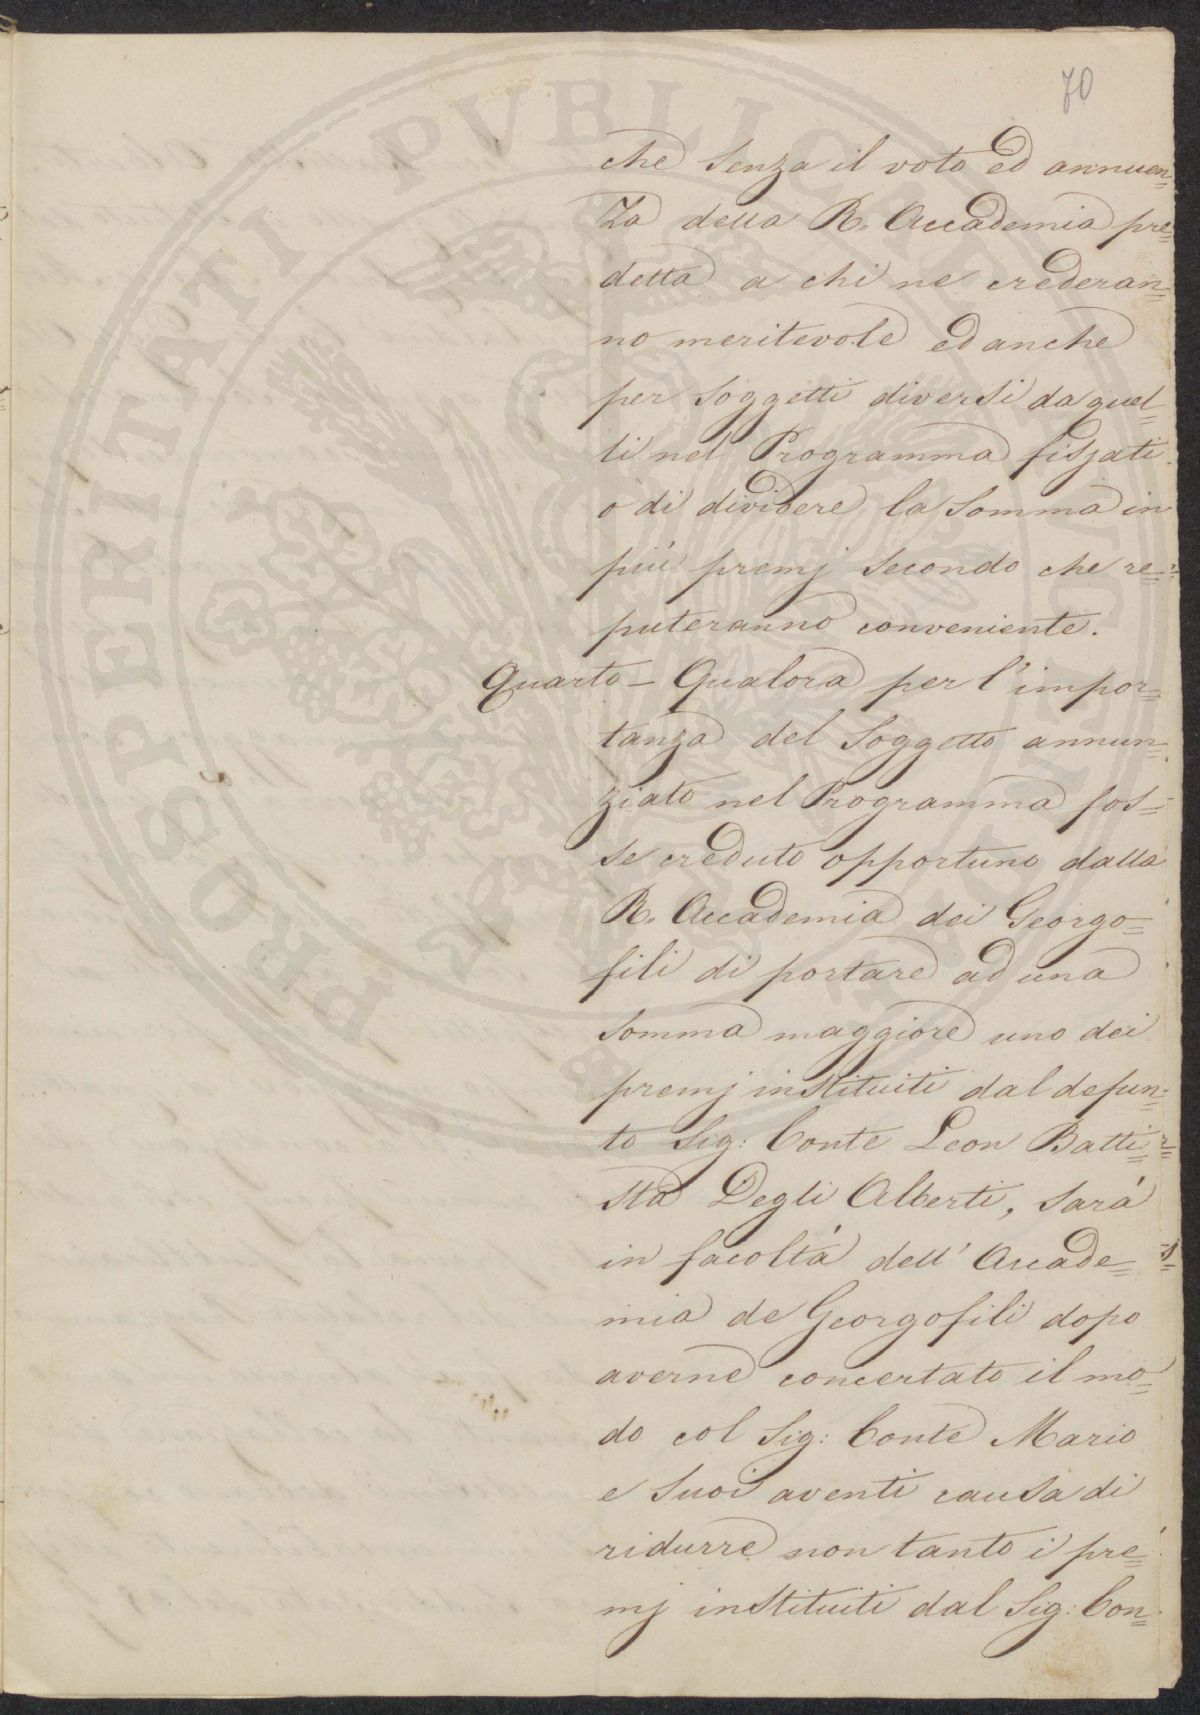 70
che senza il voto ed annuen=
za della R. Accademia pre=
detta a chi ne crederan=
no meritevole ed anche
per soggetti diversi da quel=
li nel Programma fissati
o di dividere la somma in
più premj secondo che re=
puteranno conveniente.
Quarto — Qualora per l'impor=
tanza del soggetto annun=
ziato nel Programma fos=
se creduto opportuno dalla
R. Accademia dei Georgo=
fili di portare ad una
somma maggiore uno dei
premj instituiti dal defun=
to Sig: Conte Leon Batti=
sta Degli Alberti, sarà
in facoltà dell'Accade=
mia de Georgofili dopo
averne concertato il mo=
do col Sig: Conte Mario
e suoi aventi causa di
ridurre non tanto i pre=
mj instituiti dal Sig: Con=
PROSPERITATI PVBLICAE